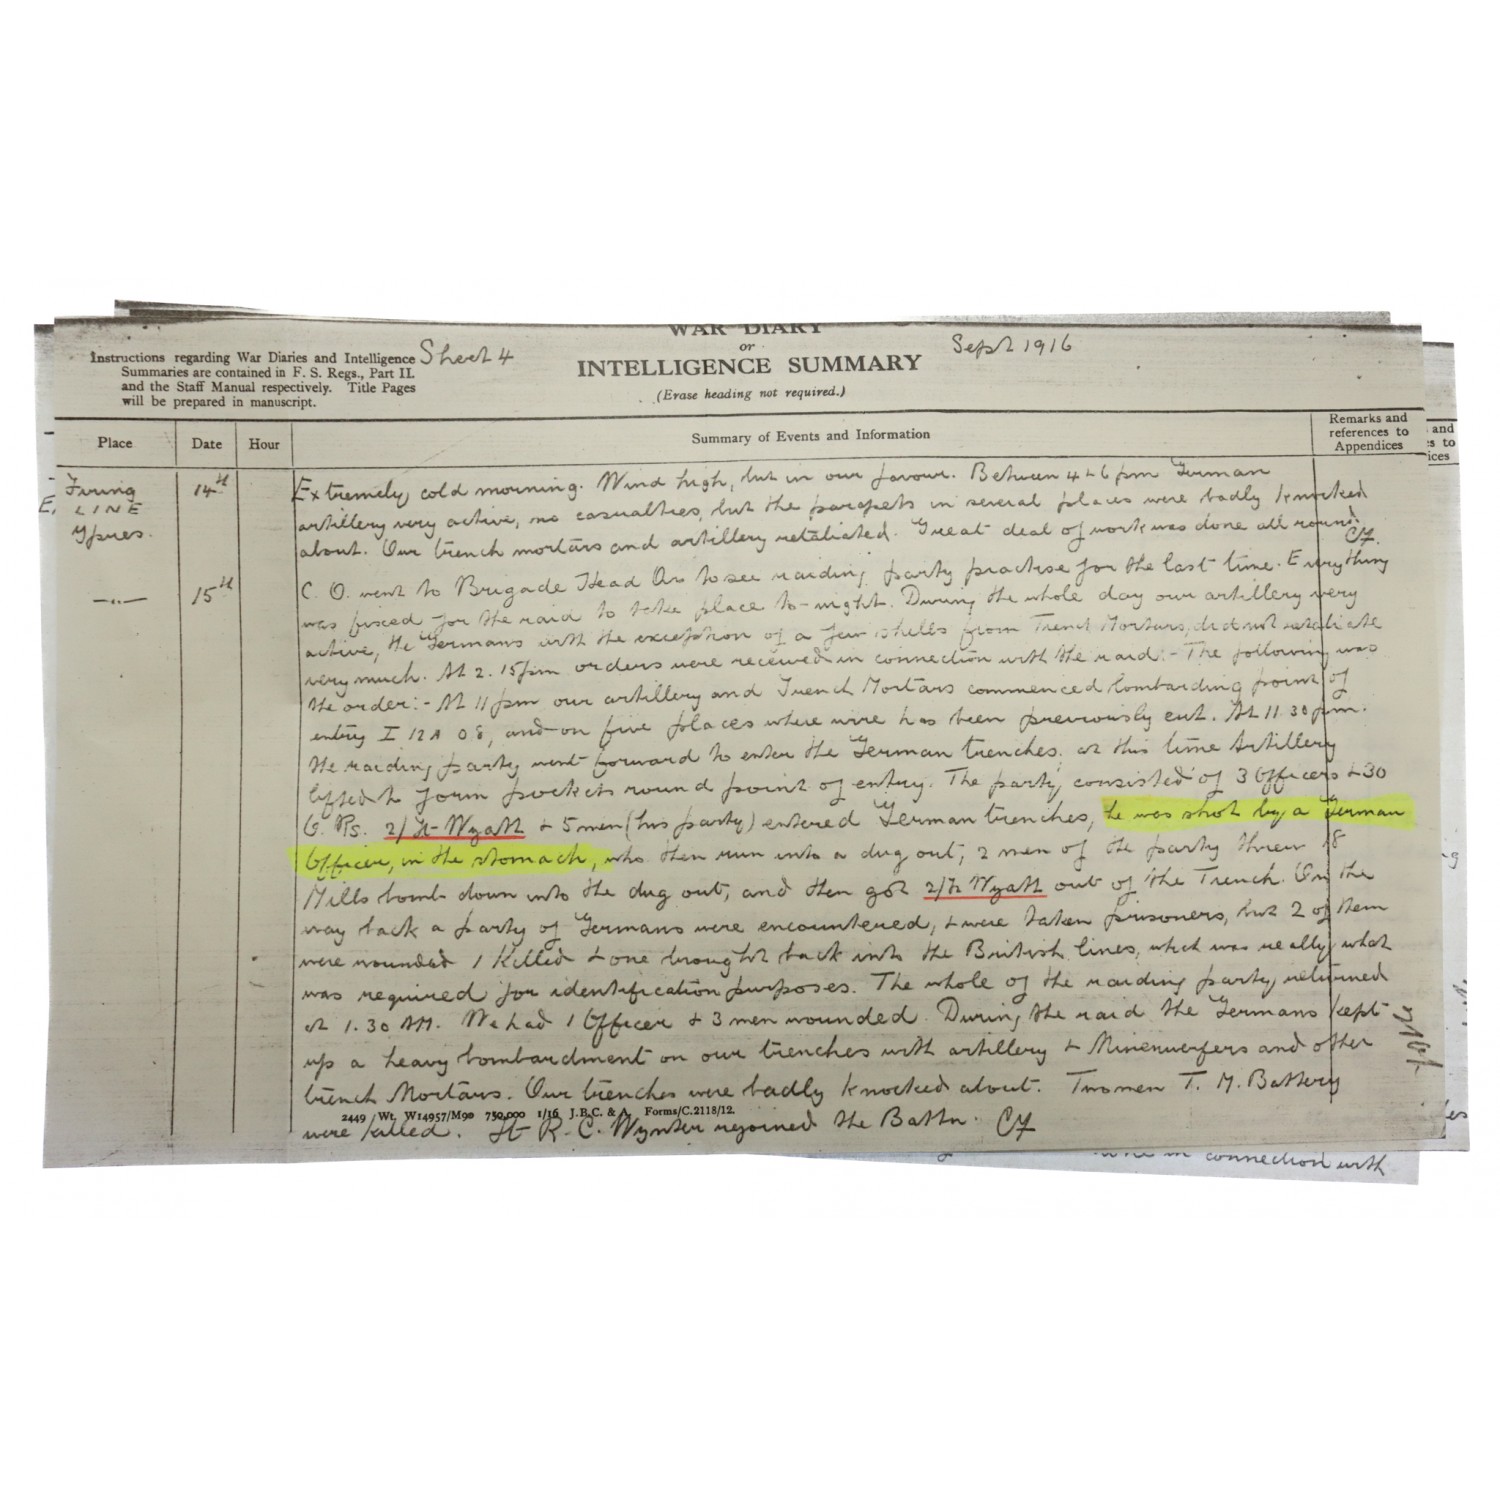 WAR DIARY
or
INTELLIGENCE SUMMARY
(Erase heading not required.)
Instructions regarding War Diaries and Intelligence
Summaries are contained in F. S. Regs., Part II.
and the Staff Manual respectively. Title Pages
will be prepared in manuscript.
Sheet 4
Sept 1916
Place
Date
Hour
Summary of Events and Information
Remarks and
references to
Appendices
and
es to
ices
Firing
LINE
Ypres.
14th
Extremely cold morning. Wind high, but in our favour. Between 4 & 6 pm German
artillery very active, no casualties, but the parapets in several places were badly knocked
about. Our trench mortars and artillery retaliated. Great deal of work was done all round.
15th
C. O. went to Brigade Head Qrs to see raiding party practise for the last time. Everything
was fixed for the raid to take place to-night. During the whole day our artillery very
active, the Germans with the exception of a few shells from Trench Mortars, did not retaliate
very much. At 2.15 pm orders were received in connection with the raid:- The following was
the order:- At 11 pm our artillery and Trench Mortars commenced bombarding point of
entry I 12 A 08, and on five places where wire has been previously cut. At 11.30 pm.
the raiding party went forward to enter the German trenches, at this time Artillery
lifted to form pockets round point of entry. The party consisted of 3 Officers & 30
O. Rs. 2/Lt Wyatt & 5 men (his party) entered German trenches, he was shot by a German
Officer, in the stomach, who then run into a dug out, 2 men of the party threw 18
Mills bomb down into the dug out, and then got 2/Lt Wyatt out of the Trench. On the
way back a party of Germans were encountered, & were taken prisoners, but 2 of them
were wounded 1 killed & one brought back into the British lines, which was really what
was required for identification purposes. The whole of the raiding party returned
at 1.30 AM. We had 1 Officer & 3 men wounded. During the raid the Germans kept
up a heavy bombardment on our trenches with artillery & Minenwerfers and other
trench Mortars. Our trenches were badly knocked about. Two men T. M. Battery
2449 Wt. W14957/M90 750,000 1/16 J.B.C. & A. Forms/C.2118/12.
were killed. Lt R. C. Wynter rejoined the Battn.
in connection with